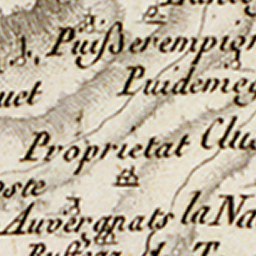 Puißerempign
Puidemeg
uet
Proprietat Clu
oste
Auvergnats la Na